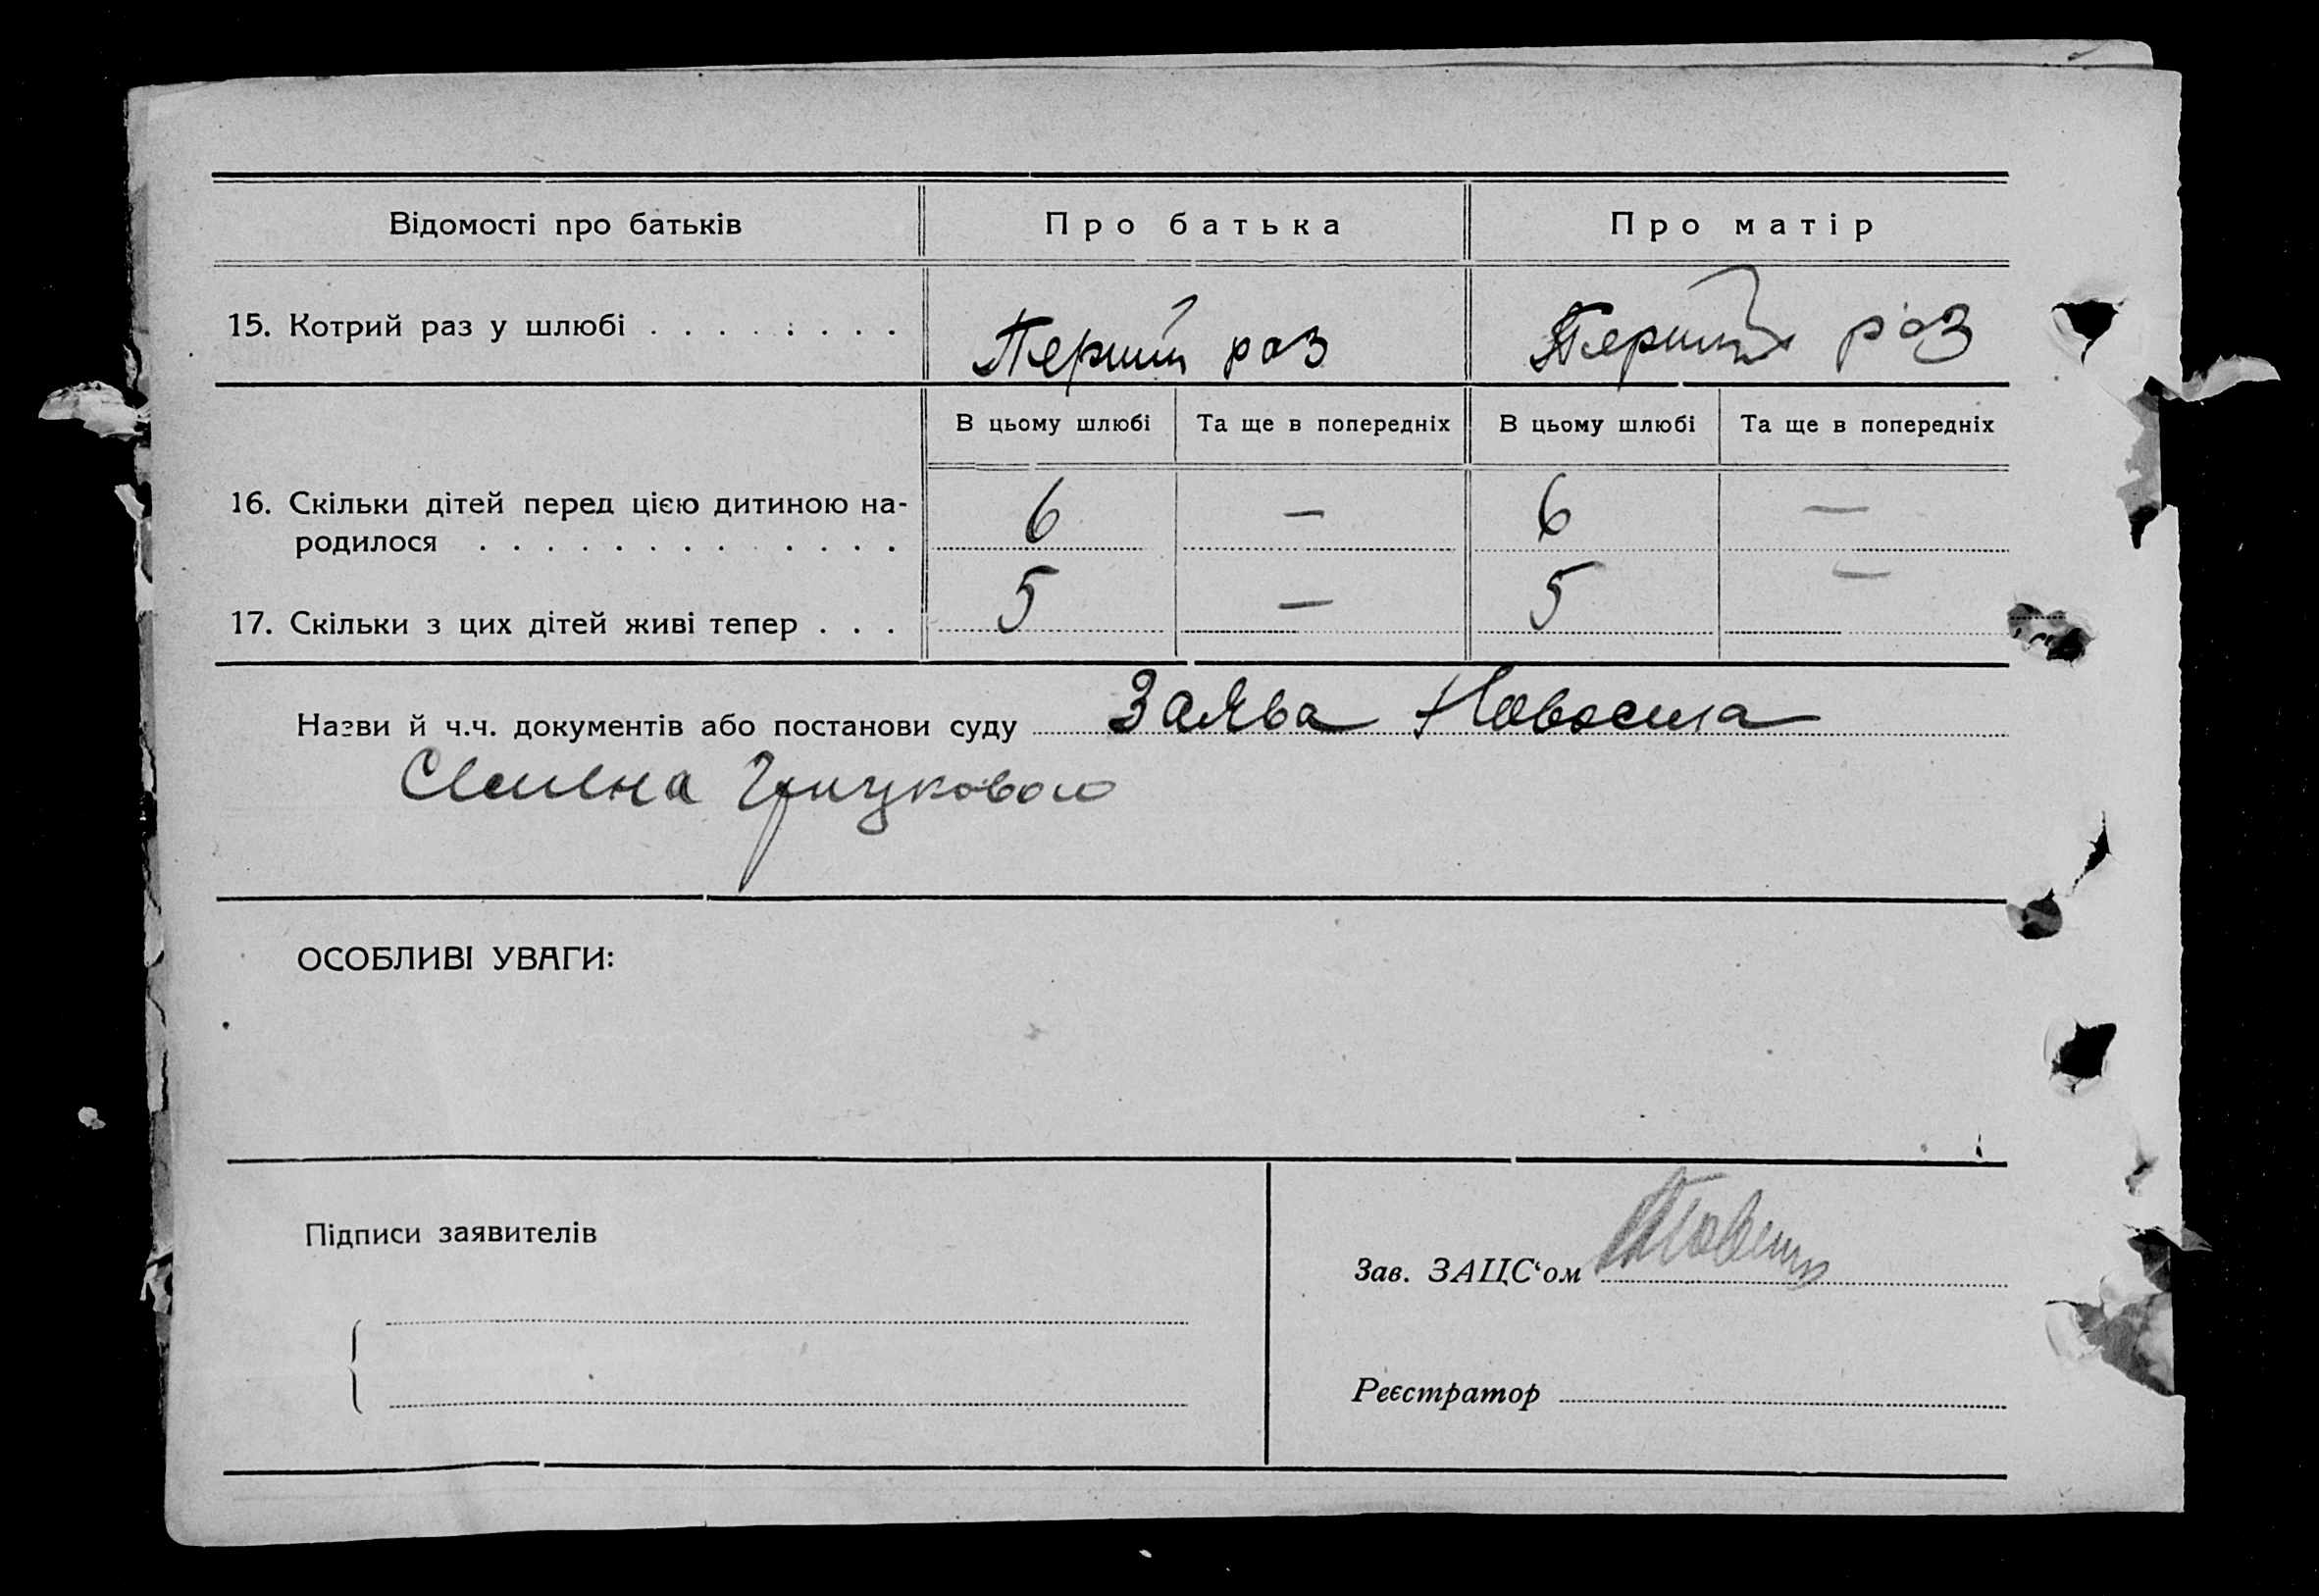 Відомості про батьків
Про батька
Про матір
15. Котрий раз у шлюбі . . . . . . . .
Перший раз
Перший раз
В цьому шлюбі
Та ще в попередніх
В цьому шлюбі
Та ще в попередніх
16. Скільки дітей перед цією дитиною на-
родилося . . . . . . . . . . . . .
6
—
6
—
17. Скільки з цих дітей живі тепер . . .
5
—
5
—
Назви й ч.ч. документів або постанови суду Заява
ОСОБЛИВІ УВАГИ:
Підписи заявителів
Зав. ЗАЦС‘ом
Реєстратор